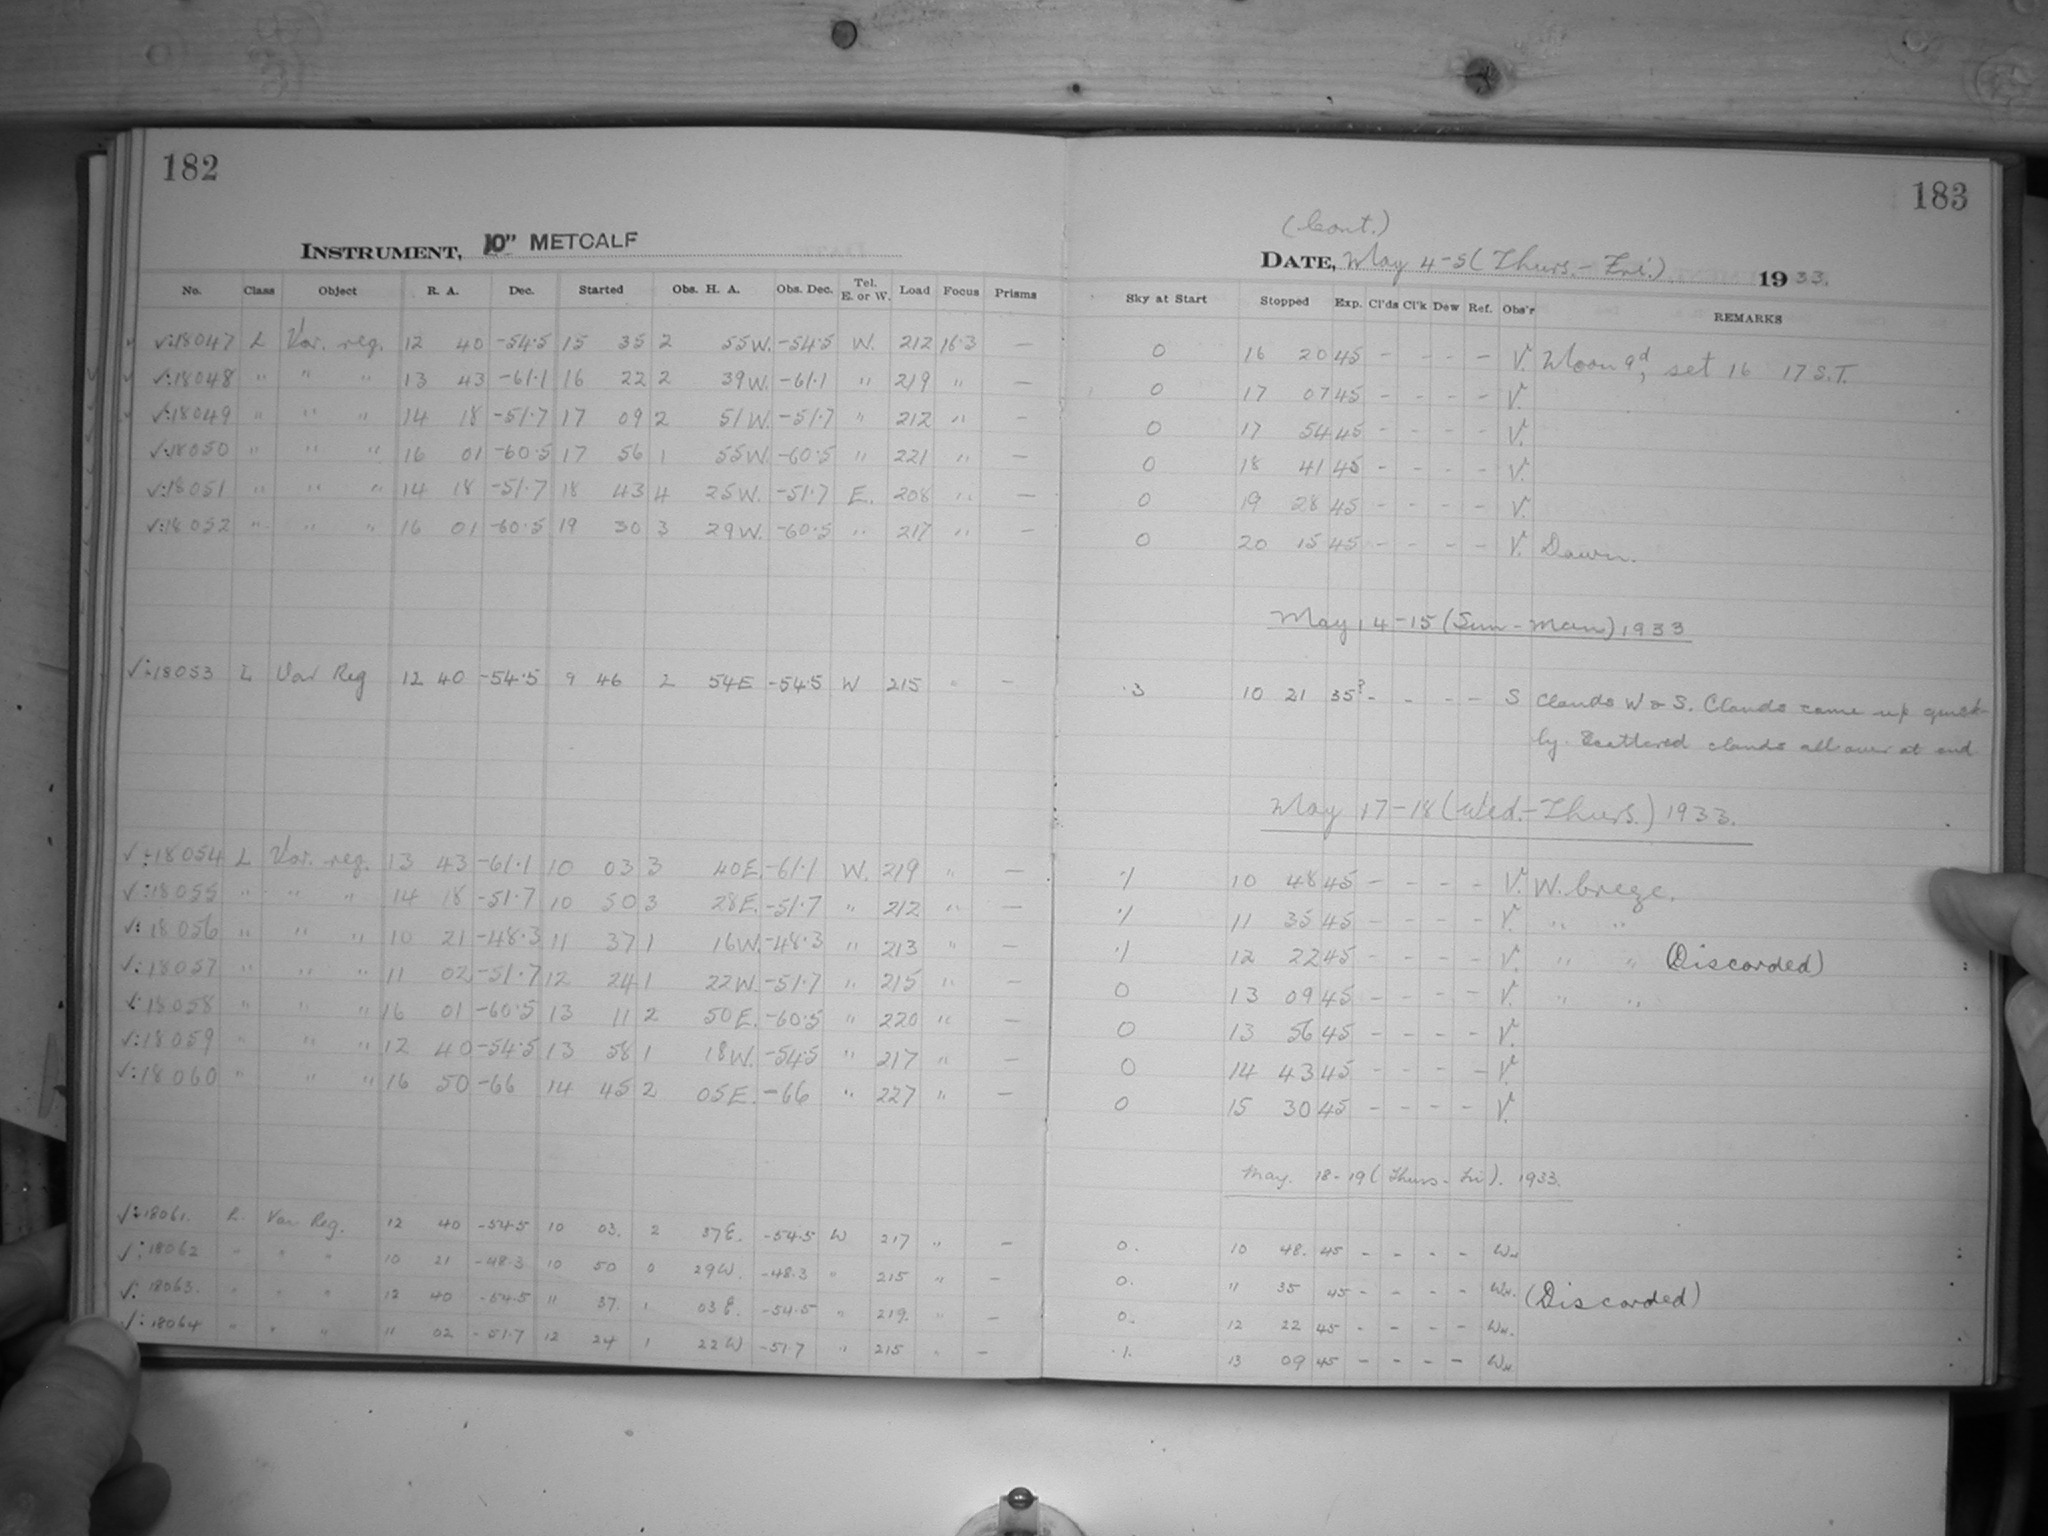 182
INSTRUMENT, 10" METCALF
No. Class Object R. A. Dec. Started Obs. H. A. Obs. Dec. Tel. E. or W. Load Focus Prisms
√:18047 L Var. reg. 12 40 -54.5 15 35 2 55W. -54.5 W. 212 16.3 —
√:18048 " " " 13 43 -61.1 16 22 2 39W. -61.1 " 219 " —
√:18049 " " " 14 18 -51.7 17 09 2 51W. -51.7 " 212 " —
√:18050 " " " 16 01 -60.5 17 56 1 55W. -60.5 " 221 " —
√:18051 " " " 14 18 -51.7 18 43 4 25W. -51.7 E. 208 " —
√:18052 " " " 16 01 -60.5 19 30 3 29W. -60.5 " 217 " —
√:18053 L Var Reg 12 40 -54.5 9 46 2 54E -54.5 W 215 " —
√:18054 L Var. reg. 13 43 -61.1 10 03 3 40E. -61.1 W. 219 " —
√:18055 " " " 14 18 -51.7 10 50 3 28E. -51.7 " 212 " —
√:18056 " " " 10 21 -48.3 11 37 1 16W. -48.3 " 213 " —
√:18057 " " " 11 02 -51.7 12 24 1 22W. -51.7 " 215 " —
√:18058 " " " 16 01 -60.5 13 11 2 50E. -60.5 " 220 " —
√:18059 " " " 12 40 -54.5 13 58 1 18W. -54.5 " 217 " —
√:18060 " " " 16 50 -66 14 45 2 05E. -66 " 227 " —
√:18061. L. Var Reg. 12 40 -54.5 10 03. 2 37E. -54.5 W 217 " —
√:18062 " " " 10 21 -48.3 10 50 0 29W. -48.3 " 215 " —
√:18063. " " " 12 40 -54.5 11 37. 1 03E. -54.5 " 219. " —
√:18064 " " " 11 02 -51.7 12 24 1 22W -51.7 " 215 " —
183
(Cont.)
DATE, May 4-5 (Thurs.-Fri.) 1933.
Sky at Start Stopped Exp. Cl'ds Cl'k Dew Ref. Obs'r REMARKS
0 16 20 45 - - - - V. Moon 9d, set 16 17 S.T.
0 17 07 45 - - - - V.
0 17 54 45 - - - - V.
0 18 41 45 - - - - V.
0 19 28 45 - - - - V.
0 20 15 45 - - - - V. Dawn.
May 14-15 (Sun-Mon) 1933
.3 10 21 35? - - - - S Clouds W & S. Clouds came up quick-
ly. Scattered clouds all over at end
May 17-18 (Wed.-Thurs.) 1933.
.1 10 48 45 - - - - V. W. breeze.
.1 11 35 45 - - - - V. " "
.1 12 22 45 - - - - V. " " (Discarded)
0 13 09 45 - - - - V. " "
0 13 56 45 - - - - V.
0 14 43 45 - - - - V.
0 15 30 45 - - - - V.
May. 18-19 (Thurs-Fri). 1933.
0. 10 48. 45 - - - - WH
0. 11 35 45 - - - - WH. (Discarded)
0. 12 22 45 - - - - WH.
.1. 13 09 45 - - - - WH